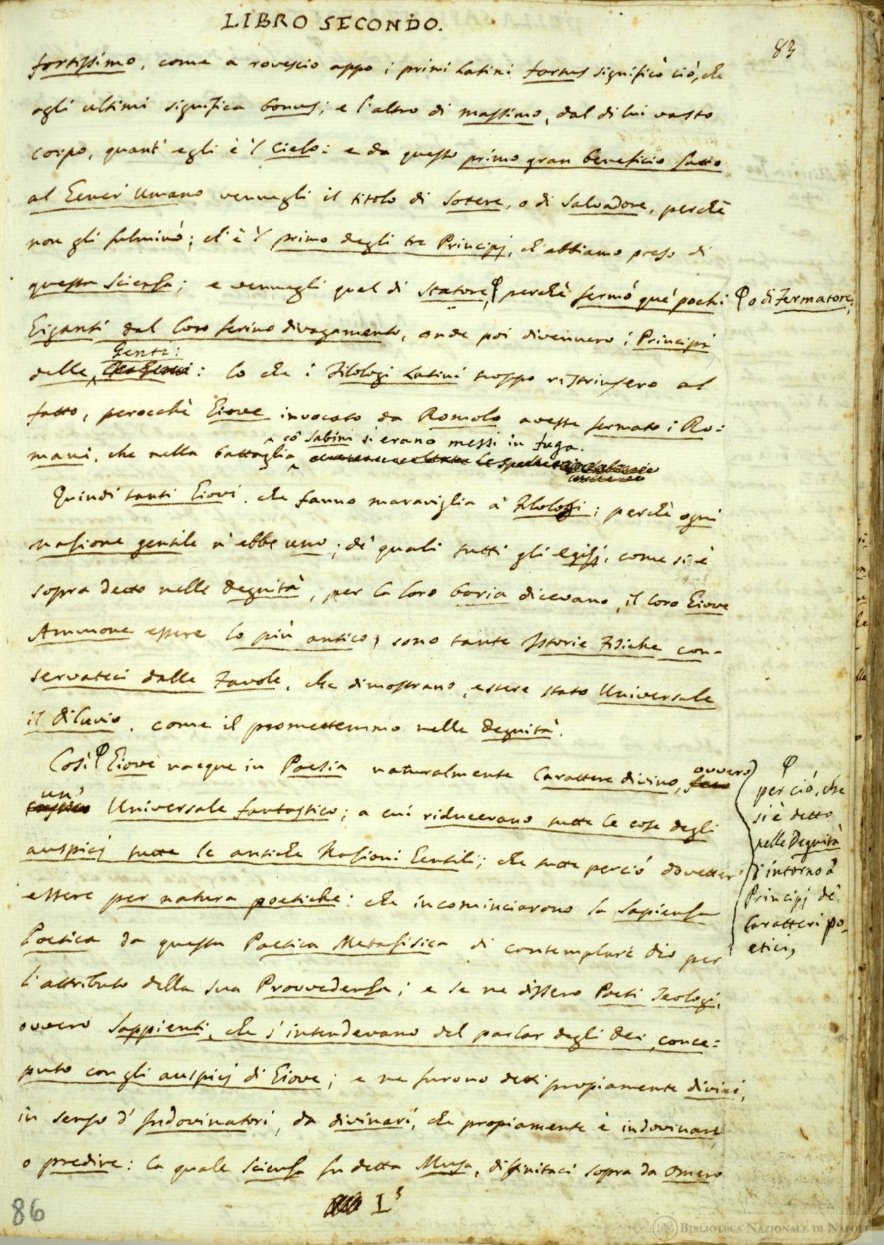 LIBRO SECONDO.
83
fortissimo, come a rovescio appo i primi Latini fortus significò ciò, che
agli ultimi significa bonus; e l'altro di massimo, dal di lui vasto
corpo, quant' egli è 'l Cielo: e da questo primo gran beneficio fatto
al Gener' Umano vennegli il titolo di Sotere, o di Salvadore, perchè
non gli fulminò; ch'è 'l primo degli tre Principj, ch'abbiamo preso di
questa Scienza; e vennegli quel di Statore, perchè fermò que' pochi
o di Fermatore,
Giganti dal loro ferino divagamento, onde poi divennero i Principi
delle Genti: lo che i Filologi Latini troppo ristrinsero al
fatto, perocchè Giove invocato da Romolo avesse fermato i Ro:
mani, che nella battaglia co' Sabini si erano messi in fuga.
Quindi tanti Giovi, che fanno maraviglia a' Filologi; perchè ogni
nazione gentile n'ebbe uno; de' quali tutti gli Egizj, come si è
sopra detto nelle Degnità, per la loro boria dicevano, il loro Giove
Ammone essere lo più antico; sono tante Istorie Fisiche con-
servateci dalle Favole, che dimostrano, essere stato Universale
il Diluvio, come il promettemmo nelle Degnità.
Così Giove nacque in Poesia naturalmente Carattere divino, ovvero
per ciò, che
si è detto
nelle Degnità
d'intorno a'
Principj de'
Caratteri po-
etici,
un' Universale fantastico; a cui riducevano tutte le cose degli
auspicj tutte le antiche Nazioni Gentili; che tutte perciò dovetter
essere per natura poetiche: che incominciarono la Sapienza
Poetica da questa Poetica Metafisica di contemplare Dio per
l'attributo della sua Provvedenza; e se ne dissero Poeti Teologi,
ovvero Sappienti, che s'intendevano del parlar degli Dei, conce:
puto con gli auspicj di Giove; e ne furono detti propiamente divini,
in senso d' Indovinatori, da divinari, che propiamente è indovinare
o predire: la quale Scienza fu detta Musa, diffinitaci sopra da Omero
L³
86
BIBLIOTECA NAZIONALE DI NAPOLI